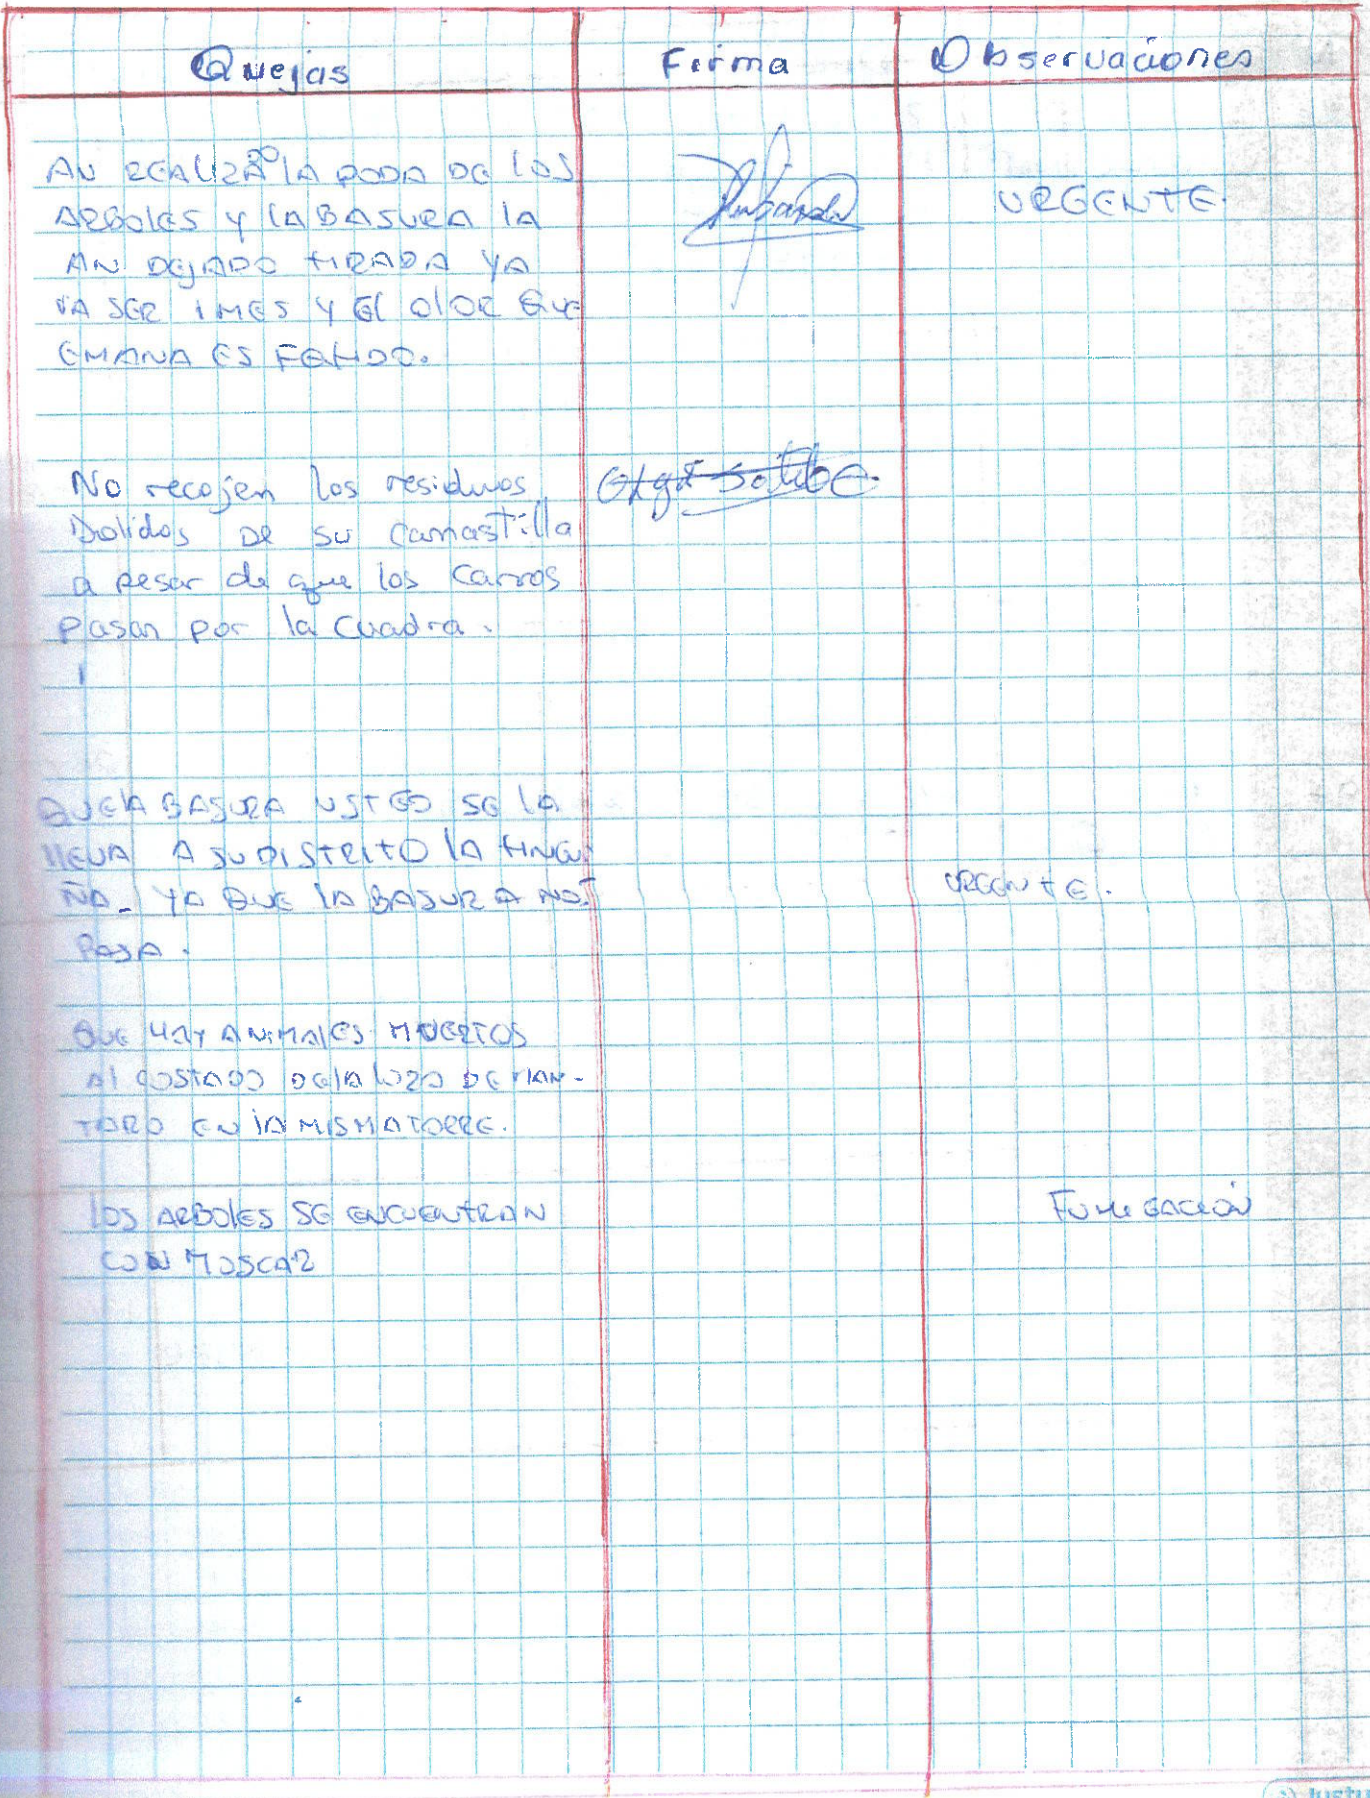 Quejas Firma Observaciones
AN REALIZADO LA PODA DE LOS
ARBOLES Y LA BASURA LA URGENTE.
AN DEJADO TIRADA YA
VA SER 1 MES Y EL OLOR QUE
EMANA ES FETIDO.
No recojen los residuos
Solidos De su canastilla
a pesar de que los carros
pasan por la cuadra.
QUE LA BASURA USTED SE LA
LLEVA A SU DISTRITO LA TINGUI
ÑA - YA QUE LA BASURA NO URGENTE.
PASA.
QUE HAY ANIMALES MUERTOS
AL COSTADO DE LA LOZA DE
EN LA MISMA TORRE.
LOS ARBOLES SE ENCUENTRAN Fumegación
CON MOSCAS